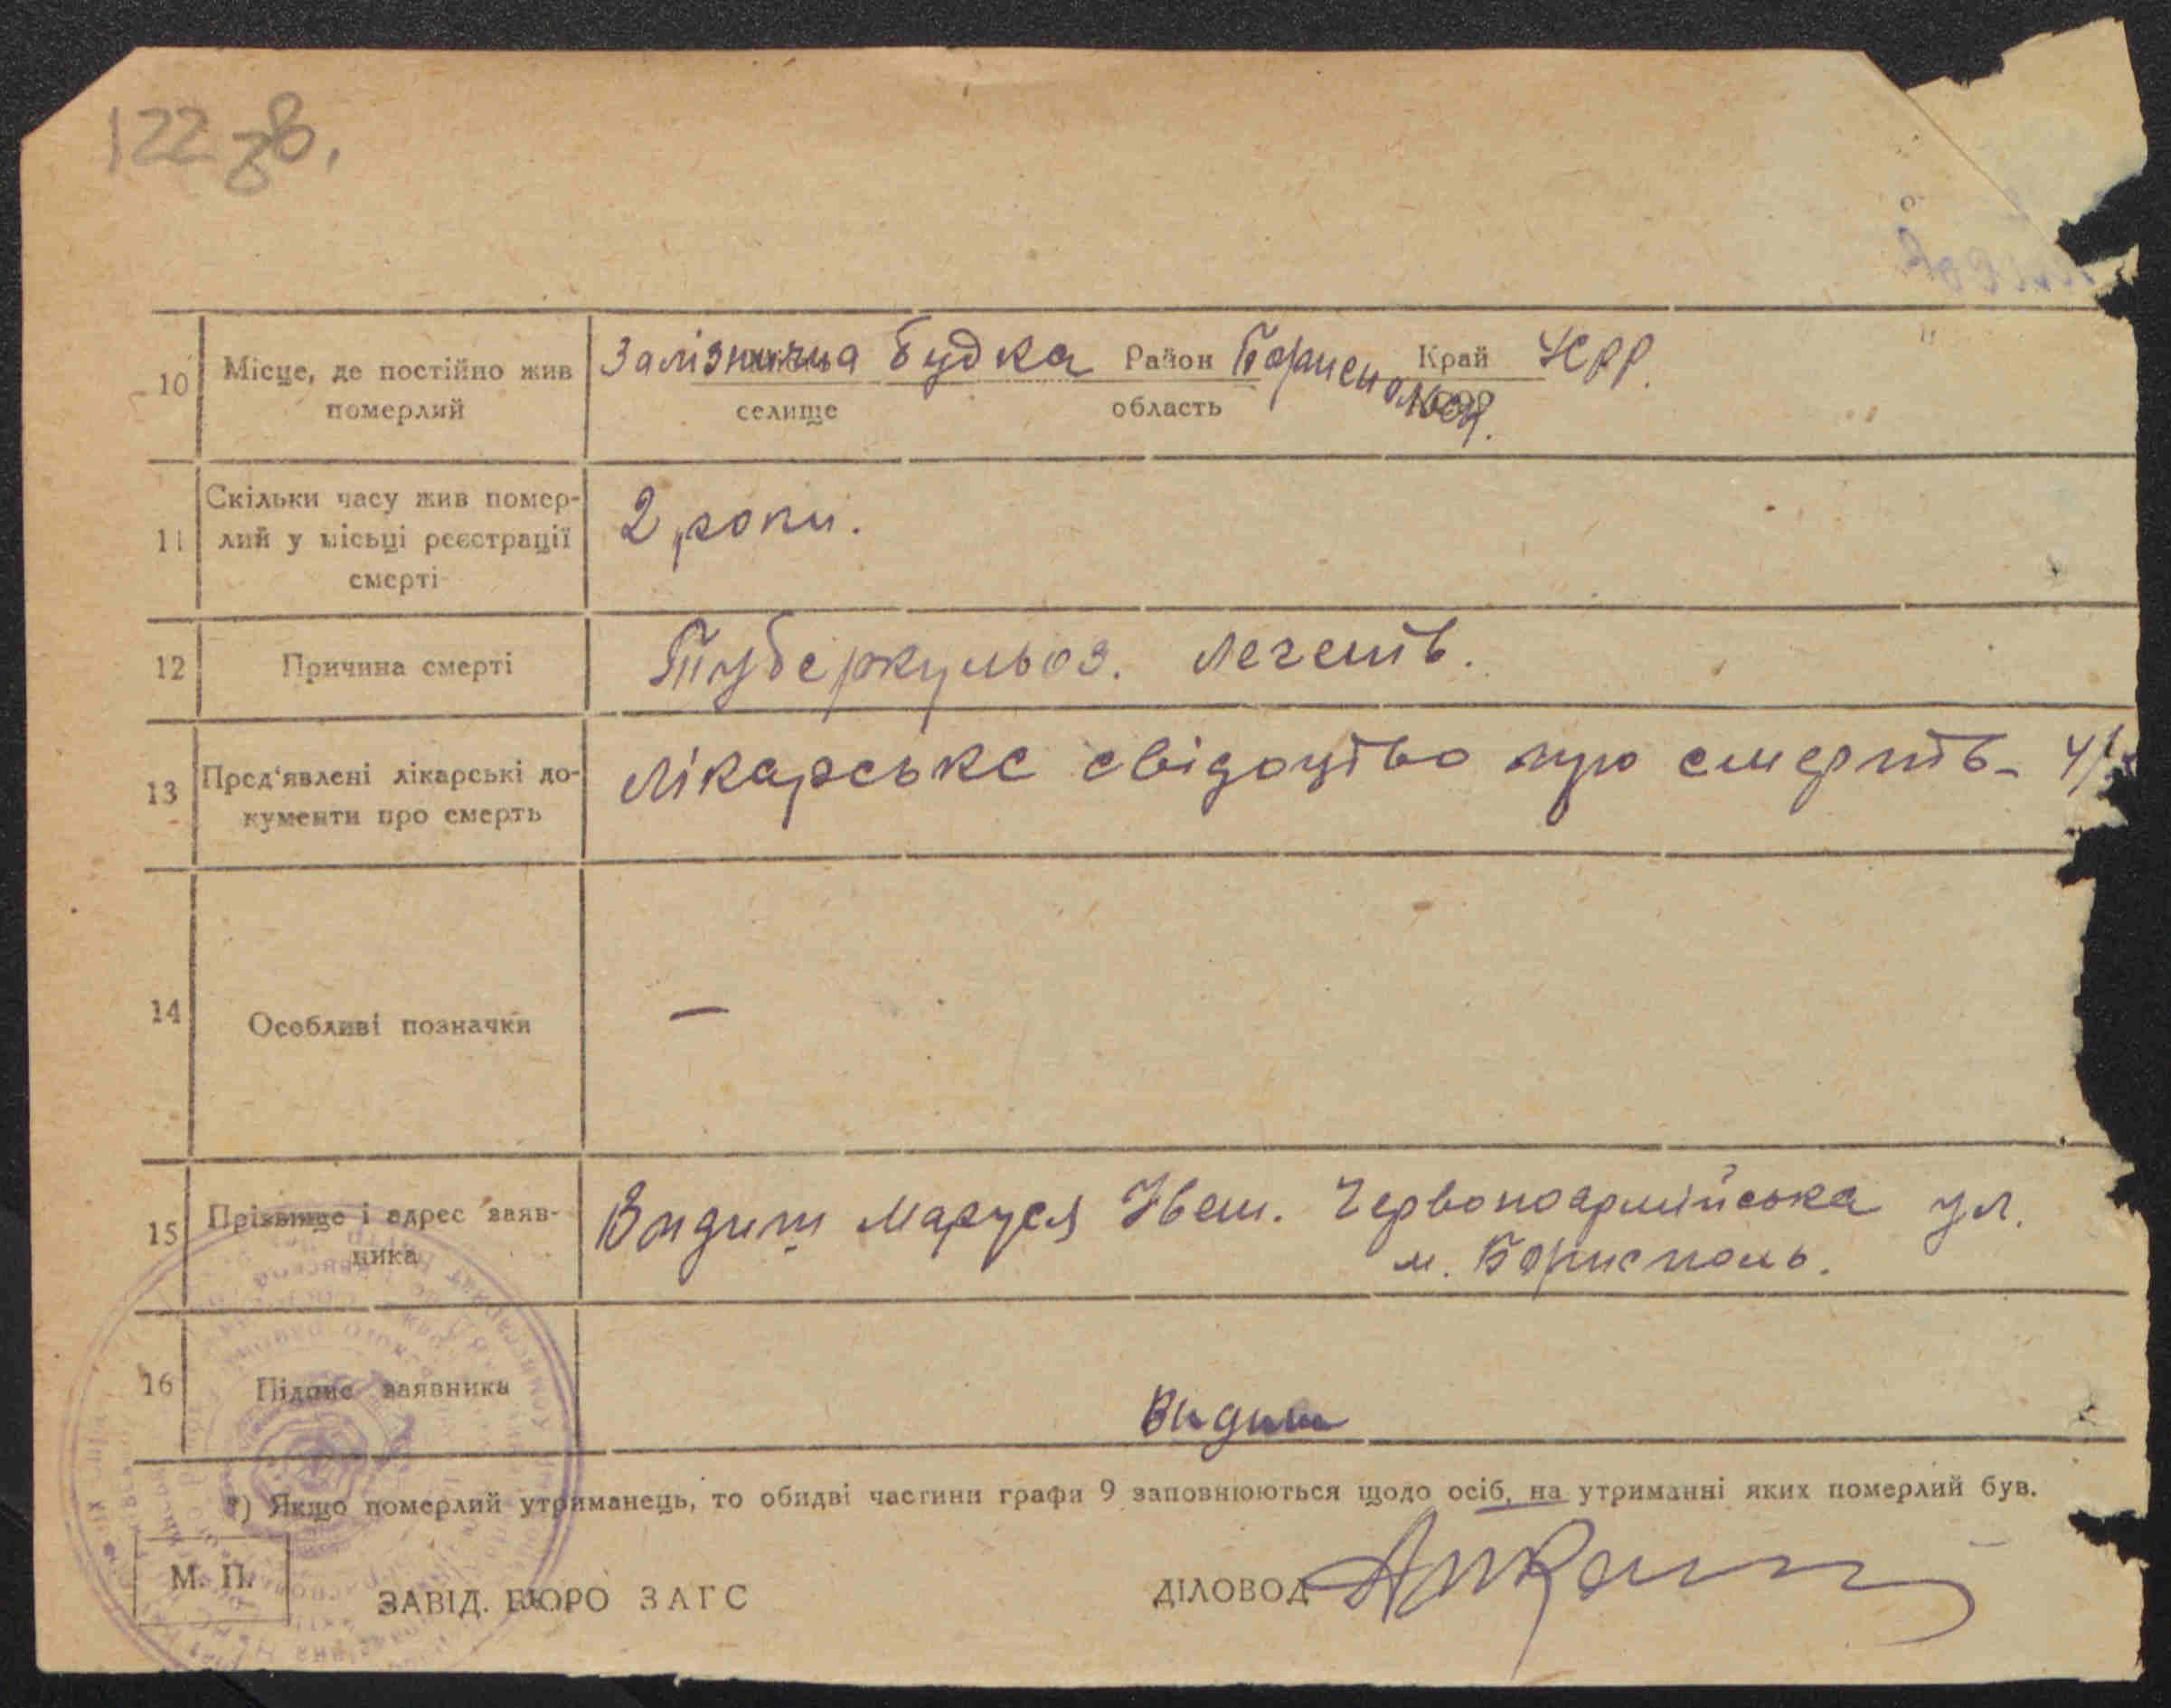 122 зв.
10 Місце, де постійно жив померлий Залізнична Будка Район Бориспольск. Край УСРР.
селище область АСРР
11 Скільки часу жив помер-
лий у місьці реєстрації 2 роки.
смерті
12 Причина смерті Туберкульоз. легень.
13 Пред'явлені лікарські до- Лікарське свідоцтво про смерть-
кументи про смерть
14 Особливі позначки —
15 Прізвище і адрес заяв- Маруся Іван. Червоноармійська ул.
ника м. Бориспіль.
16 Підпис заявника
*) Якщо померлий утриманець, то обидві частини графи 9 заповнюються щодо осіб, на утриманні яких померлий був.
М. П.
ЗАВІД. БЮРО ЗАГС ДІЛОВОД